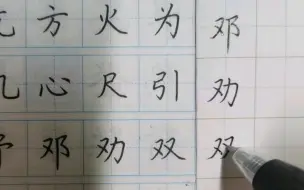 方火为邓
心尺引劝
邓劝双双